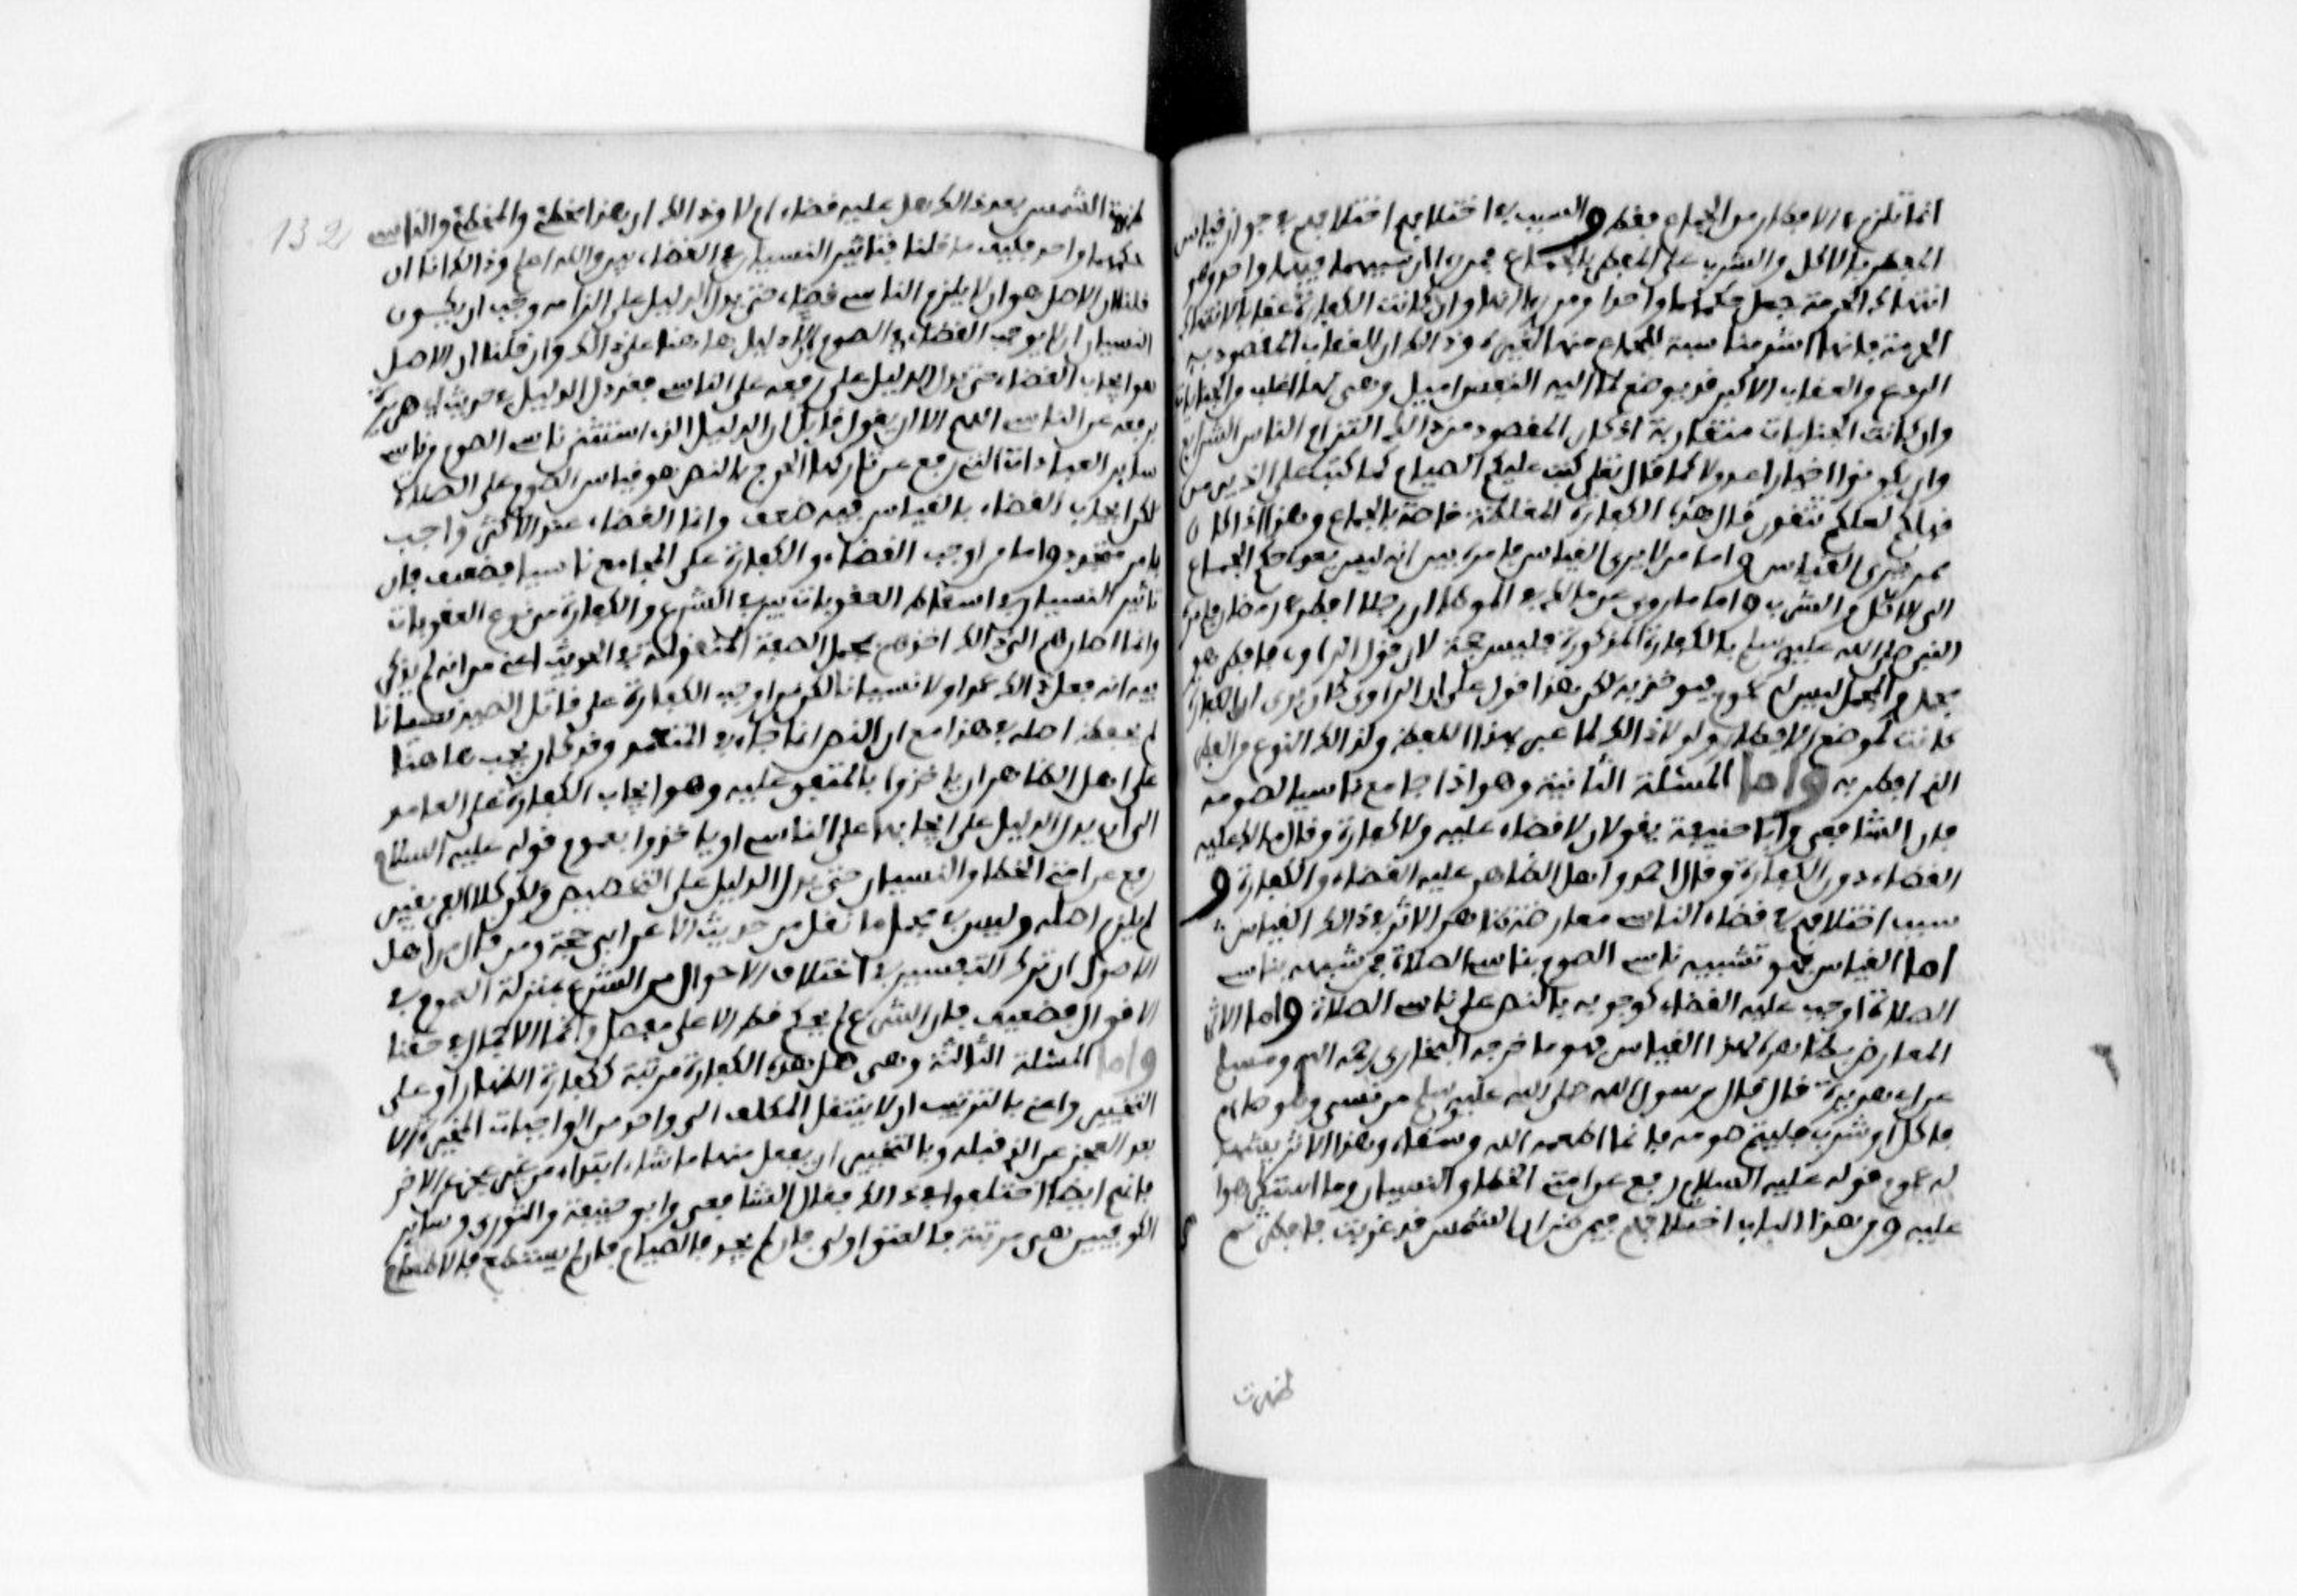 انما تلزم في الافطار من الجماع فقط والسبب في اختلافهم اختلافهم في جواز قياس
المفطر بالاكل والشرب على المفطر بالجماع فمن راى ان شبههما فيهما واحد وهو
انتهاك الحرمة جعل حكمهما واحدا ومن راى انها وان كانت الكفارة عقابا لانتهاك
الحرمة فانها اشد مناسبة للجماع منها لغيره وذالك ان العقاب المقصود به
الردع والعقاب الاكبر قد يوضع لما اليه النفس اميل وهي لها اغلب والجنايات
وان كانت الجنايات متقاربة اذ كان المقصود من ذالك التزام الناس الشرايع
وان يكونوا اخيارا عدولا كما قال تعلى كتب عليكم الصيام كما كتب على الذين من
قبلكم لعلكم تتقون قال هذه الكفارة المغلظة خاصة بالجماع وهذا اذا كان
ممن يرى القياس واما من لا يرى القياس فامره بين انه ليس يعدا حكم الجماع
الى الاكل والشرب واما ما روى عن مالك في الموطا ان رجلا افطر في رمضان فامره
النبي صلى الله عليه وسلم بالكفارة المذكورة فليس بحجة لان قول الراوي فافطر هو
مجمل والمجمل ليس له عموم فيوخذ به لكن هذا قول على ان الراوي كان يرى ان الكفارة
كانت لموضع الافطار ولولا ذالك لما عبر بهذا اللفظ ولذكر النوع من الفطر
الذي افطر به واما المسئلة الثانية وهو اذا جامع ناسيا لصومه
فان الشافعي وابا حنيفة يقولان لا قضاء عليه ولا كفارة وقال مالك عليه
القضاء دون الكفارة وقال احمد واهل الظاهر عليه القضاء والكفارة و
سبب اختلافهم في قضاء الناسي معارضة ظاهر الاثر في ذالك القياس
اما القياس فهو تشبيه ناسي الصوم بناسي الصلاة فمن شبهه بناسي
الصلاة اوجب عليه القضاء كوجوبه بالنص على ناسي الصلاة واما الاثر
المعارض بظاهره لهذا القياس فهو ما خرجه البخاري رحمه الله ومسلم
عن ابي هريرة قال قال رسول الله صلى الله عليه وسلم من نسي وهو صايم
فاكل او شرب فليتم صومه فانما اطعمه الله وسقاه وهذا الاثر يشهد
له عموم قوله عليه السلام رفع عن امتي الخطا والنسيان وما استكرهوا
عليه ومن هذا الباب اختلافهم فيمن ظن ان الشمس قد غربت فافطر ثم
ظهرت
132
ظهرت الشمس بعد ذالك هل عليه قضاء ام لا وذالك ان هذا مخطئ والمخطئ والناسي
حكمهما واحد فكيف ما قلنا فتاثير النسيان في القضاء بين والله اعلم وذالك انا ان
قلنا ان الاصل هو ان لا يلزم الناسي قضاء حتى يدل الدليل على الزامه وجب ان يكون
النسيان لا يوجب القضاء في الصوم اذ لا دليل هاهنا على ذالك وان قلنا ان الاصل
هو ايجاب القضاء حتى يدل الدليل على رفعه على الناسي فقد دل الدليل في حديث ابي هريرة
برفعه عن الناسي اللهم الا ان يقول قايل ان الدليل الذي استثنى ناسي الصوم من ناسي
ساير العبادات التي رفع عن تاركها الحرج بالنص هو قياس الصوم على الصلاة
لكن ايجاب القضاء بالقياس فيه ضعف وانما القضاء عند الاكثر واجب
بامر مجدد واما من اوجب القضاء والكفارة على المجامع ناسيا فضعيف فان
تاثير النسيان في اسقاط العقوبات بين في الشرع والكفارة من نوع العقوبات
وانما اصارهم الى ذالك اخذهم بمجمل الصفة المنقولة في الحديث اعني من انه لم يذكر
فيه انه فعل ذالك عمدا ولا نسيانا لكن من اوجب الكفارة على قاتل الصيد نسيانا
لم يحفظ اصله في هذا مع ان النص انما جاء في المتعمد وقد كان يجب هاهنا
على اهل الظاهر ان ياخذوا بالمتفق عليه وهو ايجاب الكفارة على العامد
الى ان يدل الدليل على ايجابها على الناسي او ياخذوا بعموم قوله عليه السلام
رفع عن امتي الخطا والنسيان حتى يدل الدليل على التخصيص ولكن كلا الفريقين
لم يلزم اصله وليس في مجمل ما نقل من حديث الاعرابي حجة ومن قال من اهل
الاصول ان ترك التفسير في اختلاف الاحوال من الشرع بمنزلة العموم في
الاقوال فضعيف فان الشرع لم يحكم قط الا على مفصل وانما الاجمال في حقنا
واما المسئلة الثالثة وهي هل هذه الكفارة مرتبة ككفارة الظهار او على
التخيير واعني بالترتيب ان لا ينتقل المكلف الى واحد من الواجبات المخيرة الا
بعد العجز عن الذي قبله وبالتخيير ان يفعل منها ما شاء ابتداء من غير عجز عن الاخر
فانهم ايضا اختلفوا في ذالك فقال الشافعي وابو حنيفة والثوري وساير
الكوفيين هي مرتبة فالعتق اولى فان لم يجد فالصيام فان لم يستطع فالاطعام